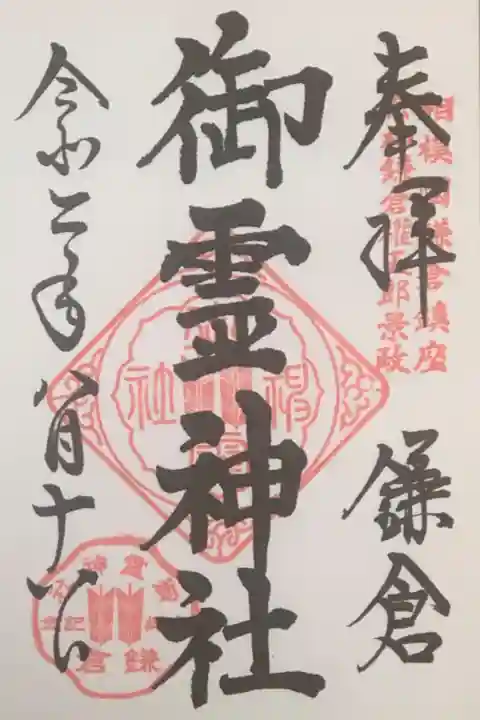 奉拝 鎌倉
相模国鎌倉鎮座
鎌倉権五郎景政
御霊神社
令和二年八月十八日
鎌倉